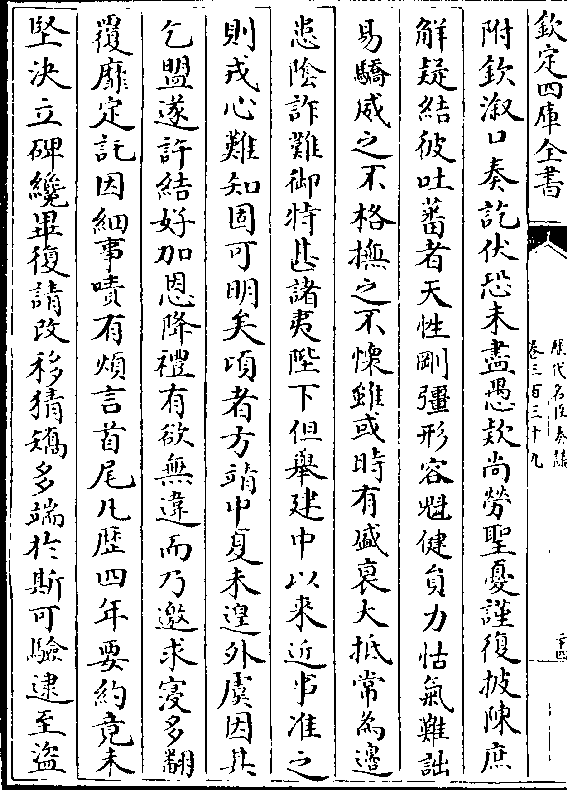 欽定四庫全書
歷代名臣奏議
卷三百三十九
附欽溆口奏訖伏恐未盡愚欵尚勞聖憂謹復披陳庶
解疑結彼吐蕃者天性剛彊形容魁健負力怙氣難詘
易驕威之不格撫之不懷雖或時有盛衰大抵常為邊
患陰詐難御特甚諸夷陛下但舉建中以来近事准之
則戎心難知固可明矣頃者方靖中夏未遑外虞因其
乞盟遂許結好加恩降禮有欲無違而乃邀求寖多翻
覆靡定託因細事嘖有煩言首尾凡歴四年要約竟未
堅决立碑纔畢復請改移猜矯多端於斯可驗逮至盜